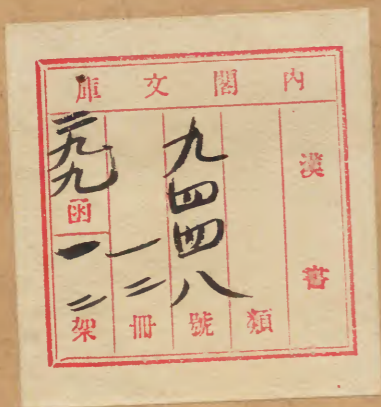 內閣文庫
漢書
類
九四四八號
一二冊
二九九函
一二架